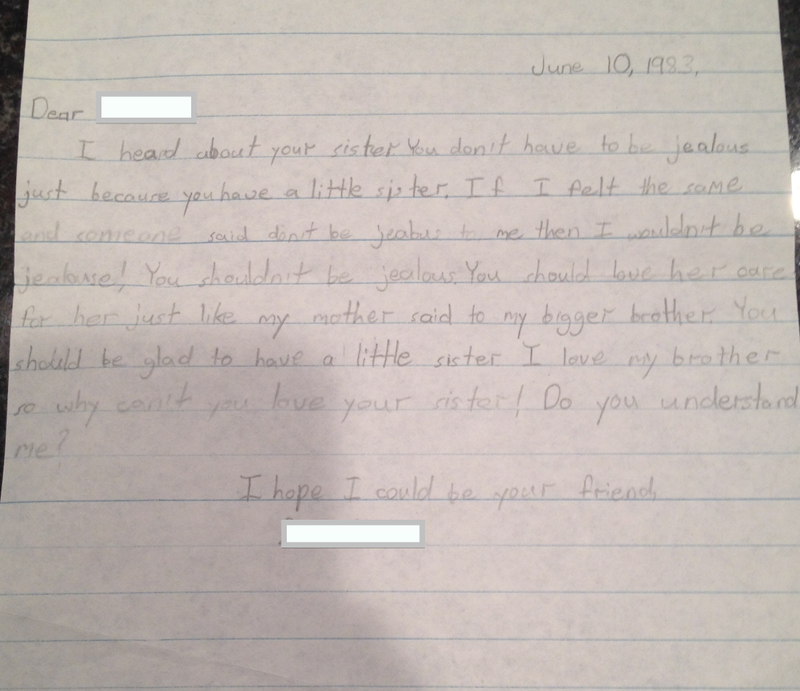 June 10, 1983,
Dear
I heard about your sister You don't have to be jealous
just because you have a little sister. If I felt the same
and someone said don't be jealous to me then I wouldn't be
jealouse! You shouldn't be jealous. You should love her care
for her just like my mother said to my bigger brother. You
should be glad to have a little sister I love my brother
so why can't you love your sister! Do you understand
me?
I hope I could be your friend,